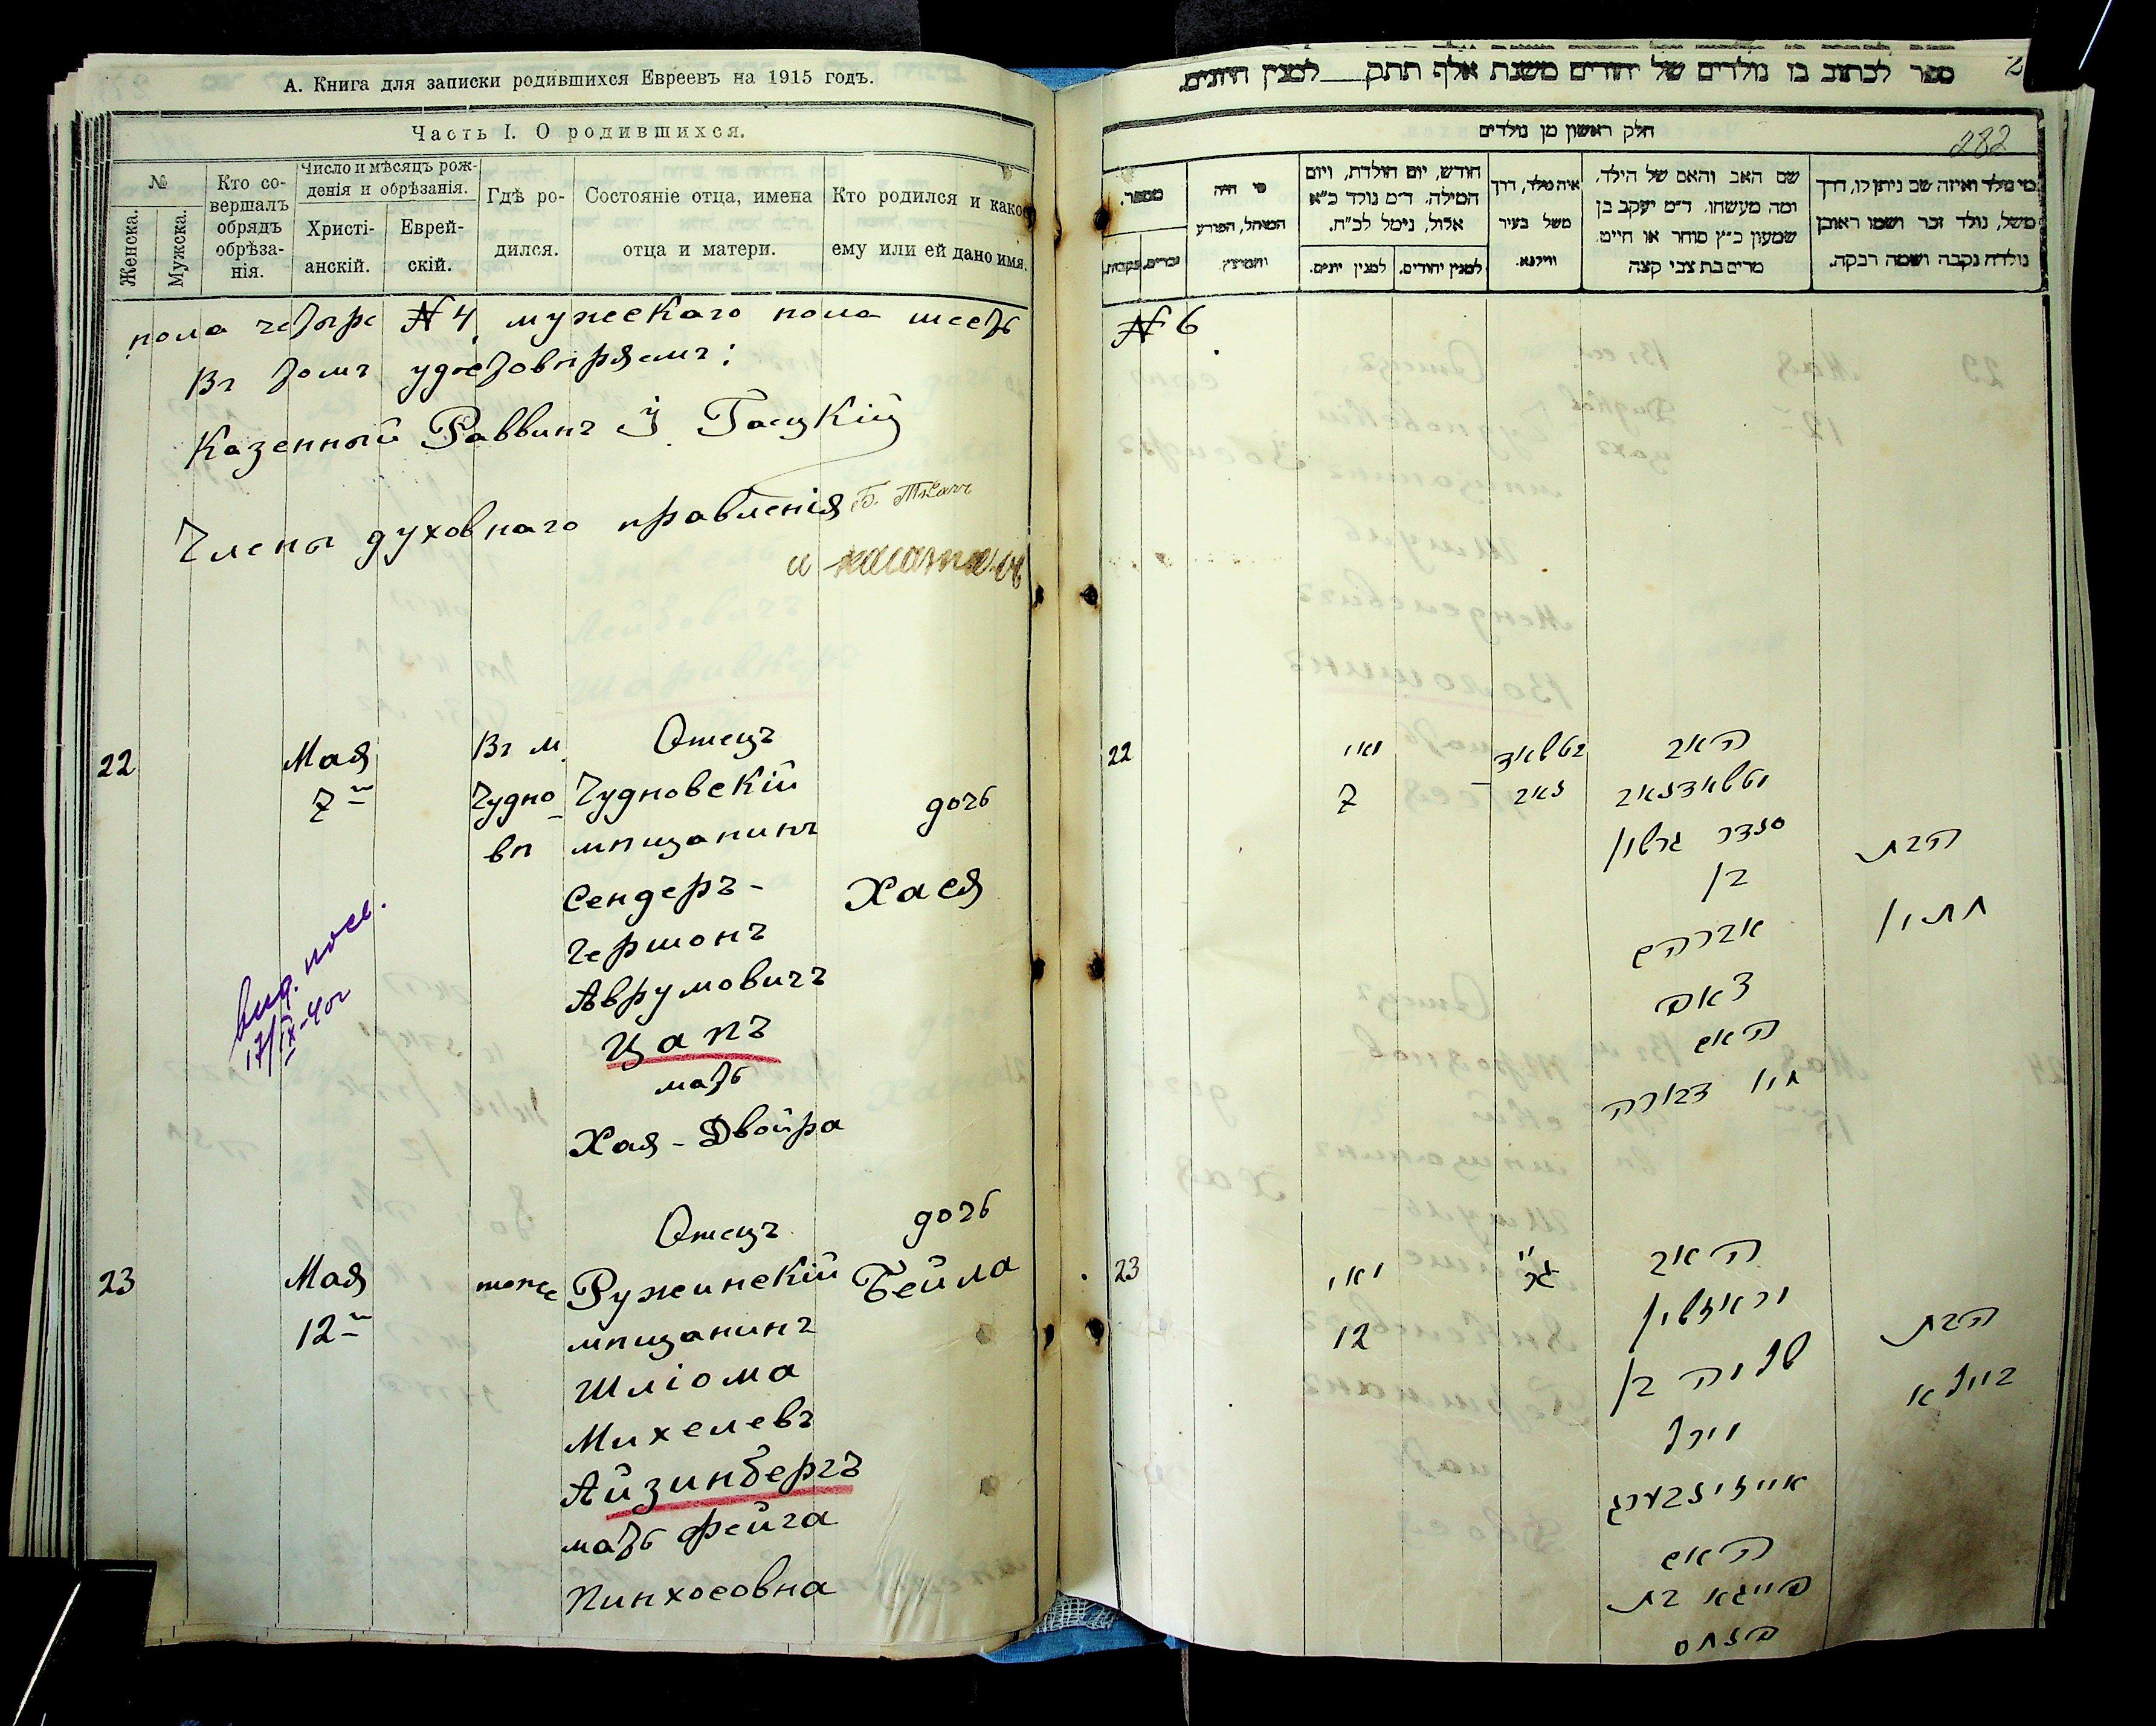 А. Книга для записки родившихся Евреевъ на 1915 годъ.
Часть I. О родившихся.
№
Женска.
Мужска.
Кто со-
вершалъ
обрядъ
обрѣза-
нія.
Число и мѣсяцъ рож-
денія и обрѣзанія.
Христі-
анскій.
Еврей-
скій.
Гдѣ ро-
дился.
Состояніе отца, имена
отца и матери.
Кто родился и какое
ему или ей дано имя.
пола четыре № 4, мужескаго пола шесть
Въ томъ удостовѣряемъ:
Казенный Раввинъ
Члены духовнаго правленія
22
Мая
7
Въ м.
Чудно
вѣ
Отецъ
Чудновскій
мѣщанинъ
Сендеръ-
Гершонъ
Аврумовичъ
Цапъ
мать
Хая-Двойра
дочь
Хася
17/IX-40г
23
Мая
12
тоже
Отецъ
Ружинскій
мѣщанинъ
Шліома
Михелевъ
Айзинбергъ
мать Фейга
Пинхосовна
дочь
Бейла
ספר לכתוב בו נולדים של יהודים משנת אלף תתק למנין היונים.
282
חלק ראשון מן נולדים
מספר.
זכרים.
נקבות.
מי היה
המוהל, הפורע
והמוצץ
חודש, יום הולדת, ויום
המילה. ד"מ נולד כ"א
אלול, נימל לכ"ח.
למנין יונים.
למנין יהודים.
איה נולד, דרך
משל בעיר
ווילנא.
שם האב והאם של הילד,
ומה מעשהו. ד"מ יעקב בן
שמעון כ"ץ סוחר או חייט
מרים בת צבי קצה
מי נולד ואיזה שם ניתן לו, דרך
משל, נולד זכר ושמו ראובן
נולדה נקבה ושמה רבקה.
№ 6
22
מאי
7
האב
סנדר גרשון
בן
אברהם
צאפ
האם
חיה דבורה
הבת
23
מאי
12
האב
שלמה בן
מיכל
אייזינבערג
האם
פייגא בת
פנחס
הבת
ביילא